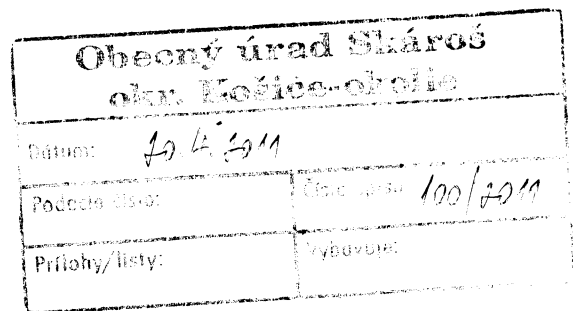 Obecný úrad Skároš
okr. Košice-okolie
Dátum: 20. 4. 2011
Podacie číslo: Číslo spisu: 100/2011
Prílohy/listy: Vybavuje: